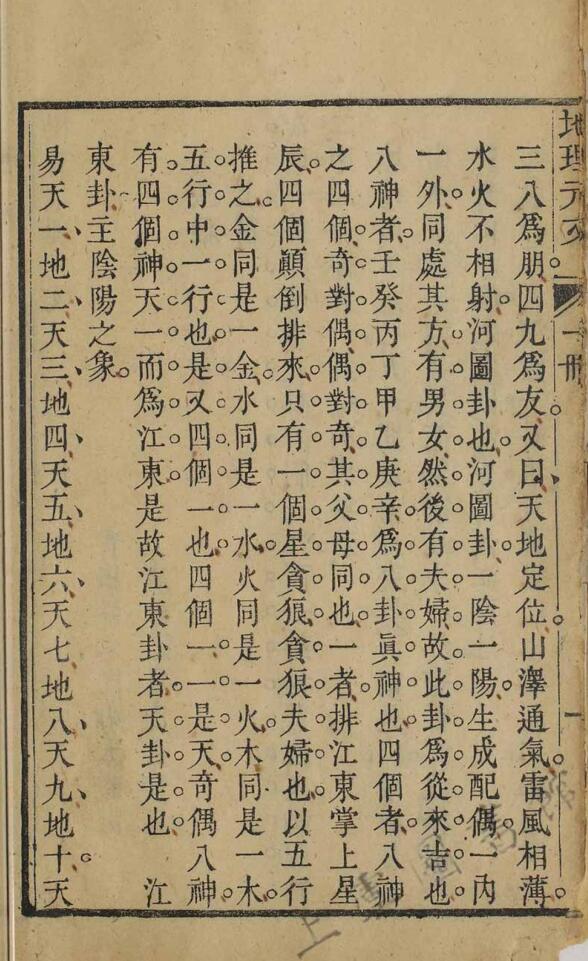 地理元文 一冊 一
三八爲朋四九爲友又曰天地定位山澤通氣雷風相薄
水火不相射河圖卦也河圖卦一陰一陽生成配偶一内
一外同處其方有男女然後有夫婦故此卦爲從來吉也
八神者壬癸丙丁甲乙庚辛爲八卦眞神也四個者八神
之四個奇對偶偶對奇其父母同也一者排江東掌上星
辰四個顛倒排來只有一個星貪狼貪狼夫婦也以五行
推之金同是一金水同是一水火同是一火木同是一木
五行中一行也是又四個一也四個一一是天奇偶八神
有四個神天一而爲江東是故江東卦者天卦是也 江
東卦主陰陽之象
易天一地二天三地四天五地六天七地八天九地十天